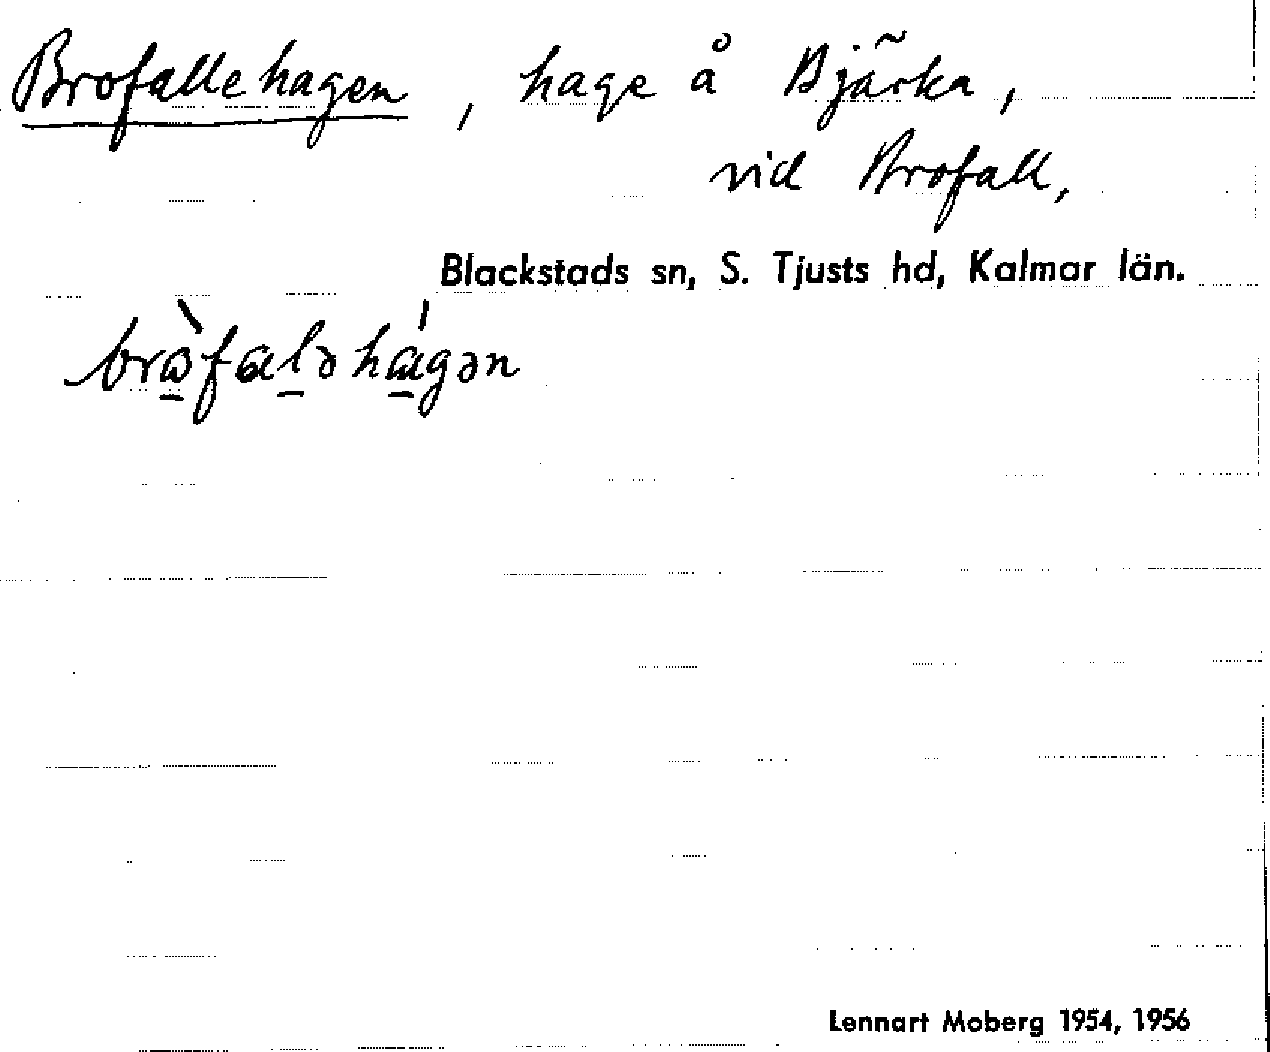 Brofallehagen, hage å Bjärka,
vid Brofall,
Blackstads sn, S. Tjusts hd, Kalmar län.
bròfaləhágən
Lennart Moberg 1954, 1956